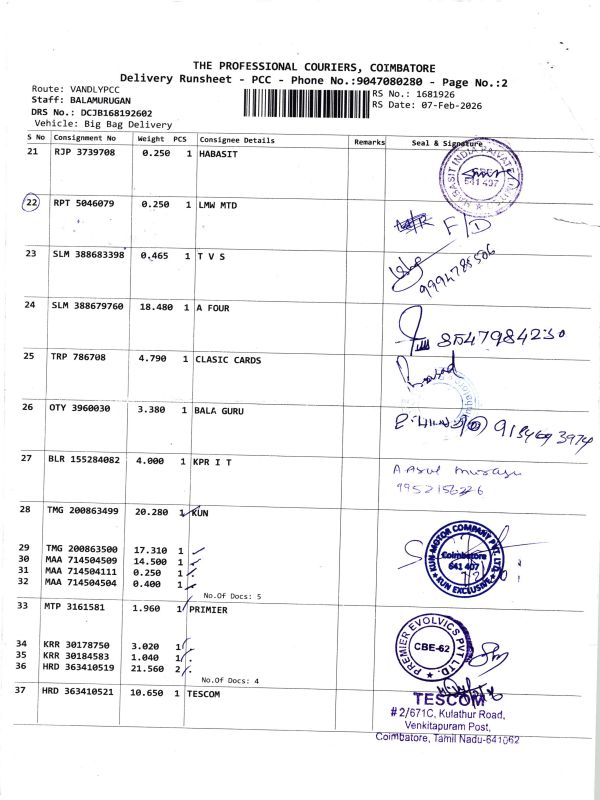 THE PROFESSIONAL COURIERS, COIMBATORE
Delivery Runsheet - PCC - Phone No.:9047080280 - Page No.:2
Route: VANDLYPCC
Staff: BALAMURUGAN
DRS No.: DCJB168192602
Vehicle: Big Bag Delivery
RS No.: 1681926
RS Date: 07-Feb-2026
S No Consignment No Weight PCS Consignee Details Remarks Seal & Signature
21 RJP 3739708 0.250 1 HABASIT
HABASIT INDIA PRIVATE
641 407
22 RPT 5046079 0.250 1 LMW MTD
F/D
23 SLM 388683398 0.465 1 T V S
9994788506
24 SLM 388679760 18.480 1 A FOUR
8547984230
25 TRP 786708 4.790 1 CLASIC CARDS
Prasad
26 OTY 3960030 3.380 1 BALA GURU
27 BLR 155284082 4.000 1 KPR I T
28 TMG 200863499 20.280 1 KUN
29 TMG 200863500 17.310 1
30 MAA 714504509 14.500 1
31 MAA 714504111 0.250 1
32 MAA 714504504 0.400 1
No.Of Docs: 5
KUN MOTOR COMPANY PVT. LTD.
Coimbatore
641 407
KUN EXCLUSIVE
33 MTP 3161581 1.960 1 PRIMIER
34 KRR 30178750 3.020 1
35 KRR 30184583 1.040 1
36 HRD 363410519 21.560 2
No.Of Docs: 4
PREMIER EVOLVICS PVT LTD.
CBE-62
37 HRD 363410521 10.650 1 TESCOM
TESCOM
# 2/671C, Kulathur Road,
Venkitapuram Post,
Coimbatore, Tamil Nadu-641062